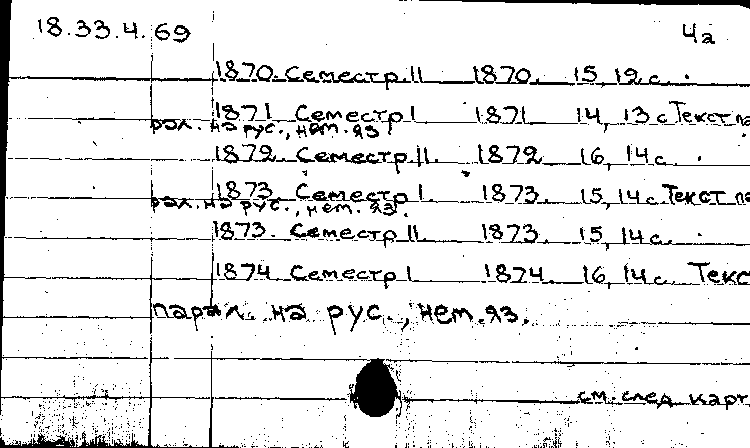 18.33.4.69 4а
1870. Семестр II 1870. 15, 12 с.
1871 Семестр I 1871 14, 13 с Текст па
рал. на рус., нем. яз
1872. Семестр II. 1872 16, 14 с.
1873 Семестр I. 1873. 15, 14 с. Текст па
рал. на рус., нем. яз.
1873. Семестр II. 1873. 15, 14 с.
1874 Семестр I 1874. 16, 14 с. Текс
парал. на рус., нем. яз.
см. след карт